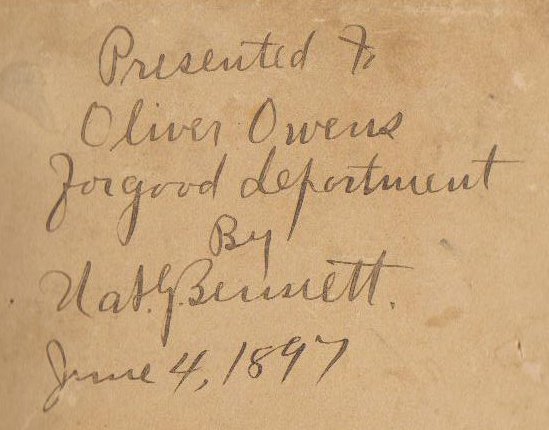 Presented To
Oliver Owens
For good deportment
By
Nat. G. Bennett.
June 4, 1897